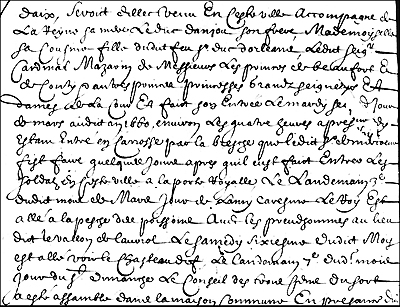 daix, seroit dillec venu En ceste ville Accompagné de
La Reyne sa mere Le duc danjou son frere Mademoyselle
sa cousine fille dudit feu sr duc dorleans Ledit seigr
Cardinal Mazarin de Messieurs Les princes de beaufort et
de conty dautres princes princesses grandz seigneurs Et
dames de La Cour Et fait son Entrée Le mardy
de mars audit an 1660, environ Les quatre heures apres
Estant Entré en Carrosse par la que Ledit
fist faire quelque Jours apres quil eust fait Entrer Les
soldatz En ceste ville a la porte Royalle Le Landemain 3e
dudit mois de Mars Jour de caresme Le Roy Est
allé a la pesche des poissons Avec Les preudhommes au lieu
dit le vallon de Lauriol Le samedy sixiesme dudit Moys
est allé voir le Chasteau dif Le Landemain 7e dudit mois
Jour du dimanche Le Conseil des trois du fort
a esté assemblé dans la maison Commune En presance du